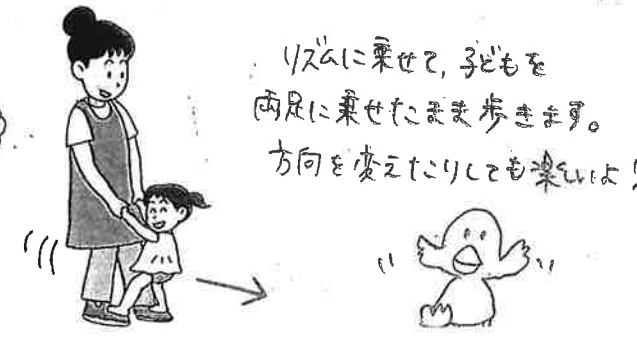 リズムに乗せて、子どもを
両足に乗せたまま歩きます。
方向を変えたりしても楽しいよ！